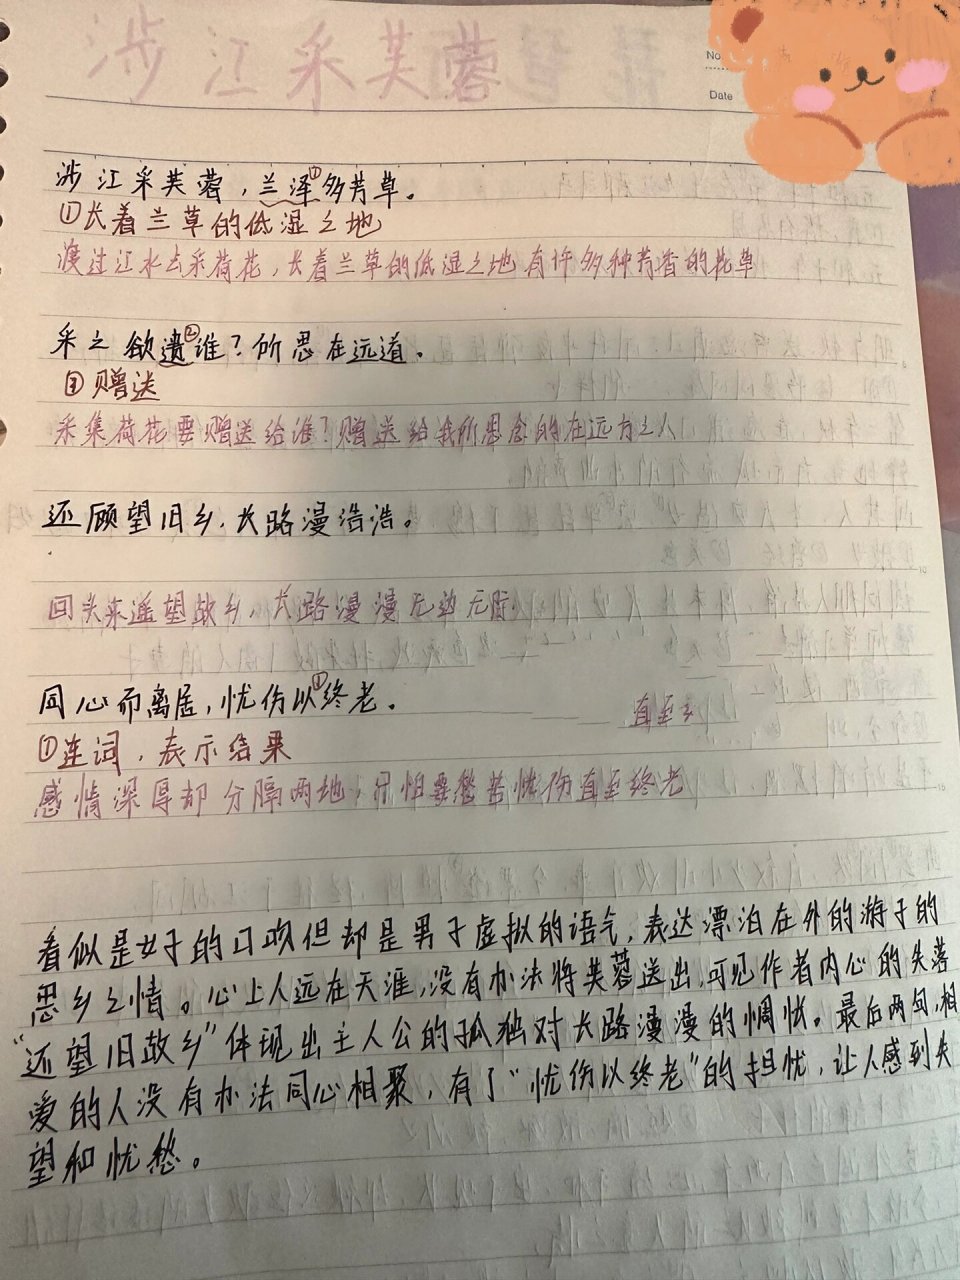 涉江采芙蓉
No.
Date
涉江采芙蓉，兰泽①多芳草。
①长着兰草的低湿之地
渡过江水去采荷花，长着兰草的低湿之地有许多种芳香的花草
采之欲遗②谁？所思在远道。
②赠送
采集荷花要赠送给谁？赠送给我所思念的在远方之人
还顾望旧乡，长路漫浩浩。
回头来遥望故乡，长路漫漫无边无际
同心而离居，忧伤以①终老。
直至
①连词，表示结果
感情深厚却分隔两地，只怕要愁苦忧伤直至终老
看似是女子的口吻但却是男子虚拟的语气，表达漂泊在外的游子的
思乡之情。心上人远在天涯，没有办法将芙蓉送出，可见作者内心的失落
“还望旧故乡”体现出主人公的孤独对长路漫漫的惆怅。最后两句，相
爱的人没有办法同心相聚，有了“忧伤以终老”的担忧，让人感到失
望和忧愁。